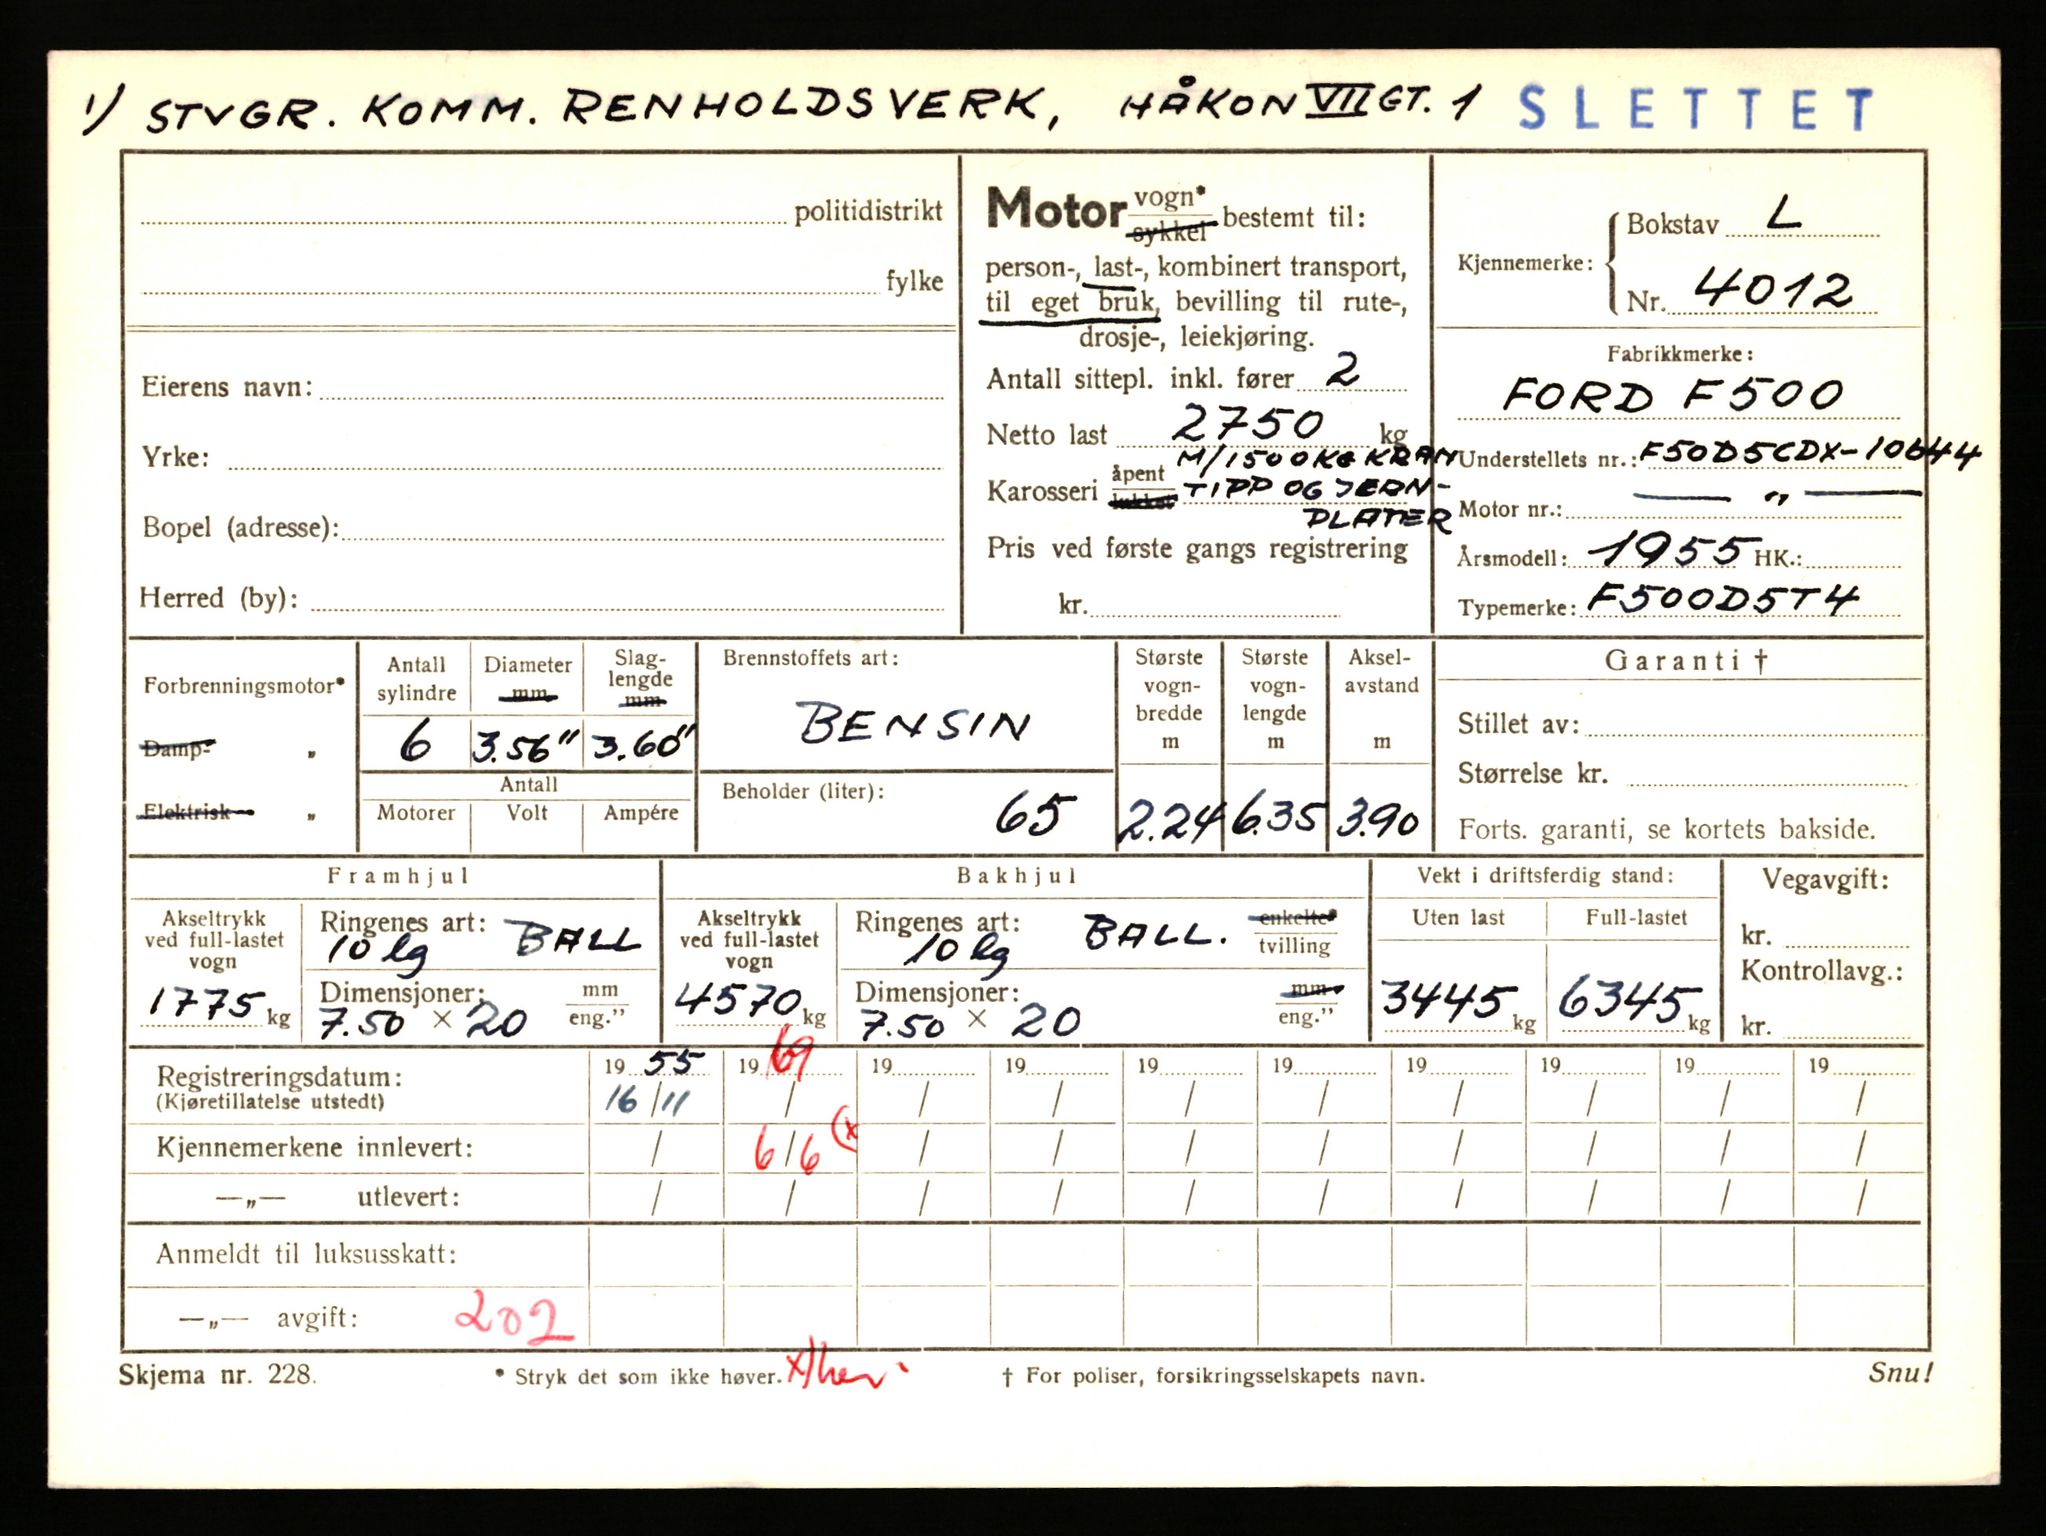 1) STVGR. KOMM. RENHOLDSVERK, HÅKON VII GT. 1 SLETTET
politidistrikt
fylke
Eierens navn:
Yrke:
Bopel (adresse):
Herred (by):
Motor vogn* sykkel bestemt til:
person-, last-, kombinert transport,
til eget bruk, bevilling til rute-,
drosje-, leiekjøring.
Antall sittepl. inkl. fører 2
Netto last 2750 kg
Karosseri åpent lukket M/1500KG KRAN
TIPP OG JERN-
PLATER
Pris ved første gangs registrering
kr.
Kjennemerke: Bokstav L
Nr. 4012
Fabrikkmerke:
FORD F500
Understellets nr.: F50D5CDX-10644
Motor nr.: — „ —
Årsmodell: 1955 HK.:
Typemerke: F500D5T4
Forbrenningsmotor*
Damp- „
Elektrisk „
Antall sylindre
6
Diameter mm
3.56"
Slag-lengde mm
3.60"
Antall
Motorer Volt Ampére
Brennstoffets art:
BENSIN
Beholder (liter):
65
Største vogn-bredde m
2.24
Største vogn-lengde m
6.35
Aksel-avstand m
3.90
Garanti †
Stillet av:
Størrelse kr.
Forts. garanti, se kortets bakside.
Framhjul
Akseltrykk
ved full-lastet
vogn
1775 kg
Ringenes art: BALL
10 lg
Dimensjoner: mm
7.50 × 20 eng."
Bakhjul
Akseltrykk
ved full-lastet
vogn
4570 kg
Ringenes art: BALL. enkelte*
10 lg tvilling
Dimensjoner: mm
7.50 × 20 eng."
Vekt i driftsferdig stand:
Uten last Full-lastet
3445 kg 6345 kg
Vegavgift:
kr.
Kontrollavg.:
kr.
Registreringsdatum: 19 55 19 69 19 19 19 19 19 19 19 19
(Kjøretillatelse utstedt) 16/11 / / / / / / / / /
Kjennemerkene innlevert: / 6/6 (x / / / / / / / /
—„— utlevert: / / / / / / / / / /
Anmeldt til luksusskatt:
—„— avgift: 202
Skjema nr. 228. * Stryk det som ikke høver. x) † For poliser, forsikringsselskapets navn. Snu!